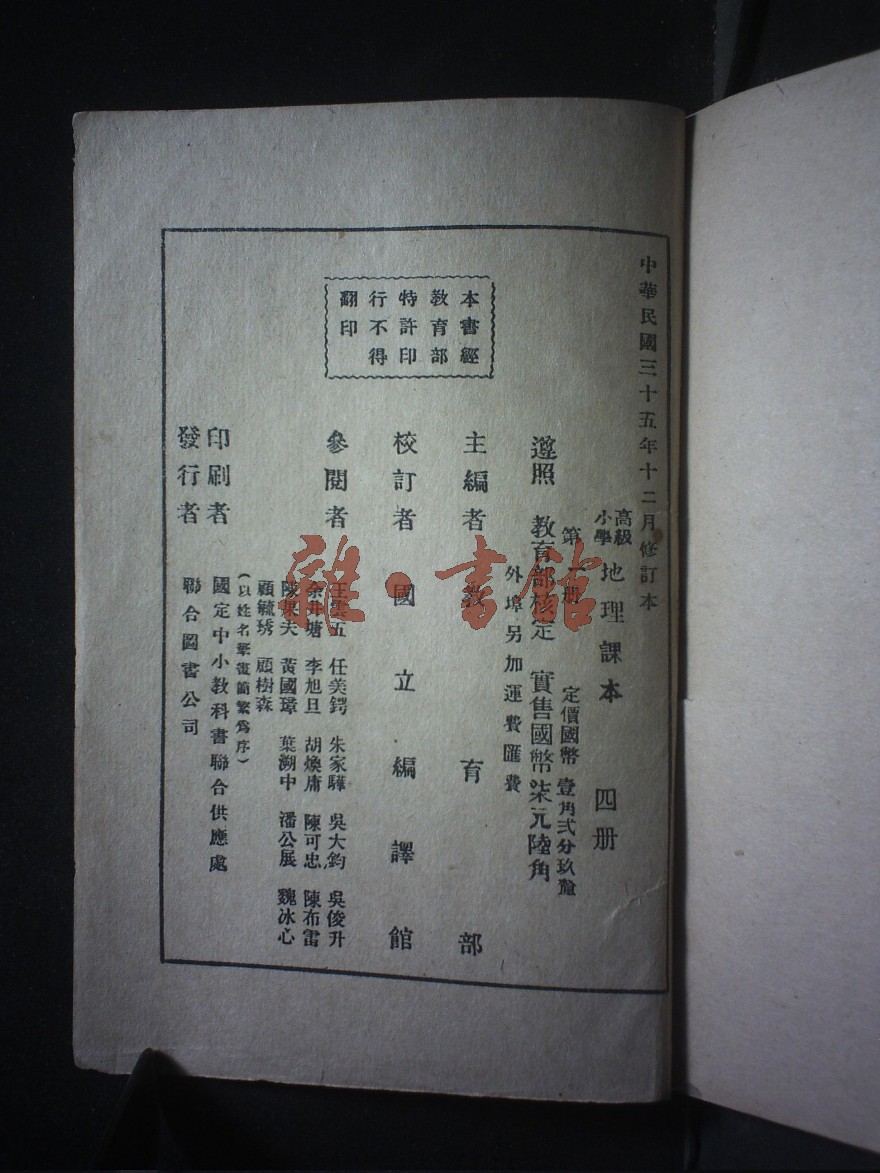 中華民國三十五年十二月修訂本
高級
小學
地理課本 四册
第 册 定價國幣壹角弍分玖釐
遵照 教育部核定 實售國幣柒元陸角
外埠另加運費匯費
本書經
教育部
特許印
行不得
翻印
主編者 教育部
校訂者 國立編譯館
參閱者 王雲五 任美鍔 朱家驊 吳大鈞 吳俊升
余井塘 李旭旦 胡煥庸 陳可忠 陳布雷
陳果夫 黃國璋 葉溯中 潘公展 魏冰心
顧毓琇 顧樹森
(以姓名筆畫簡繁爲序)
印刷者 國定中小教科書聯合供應處
發行者 聯合圖書公司
雜·書館